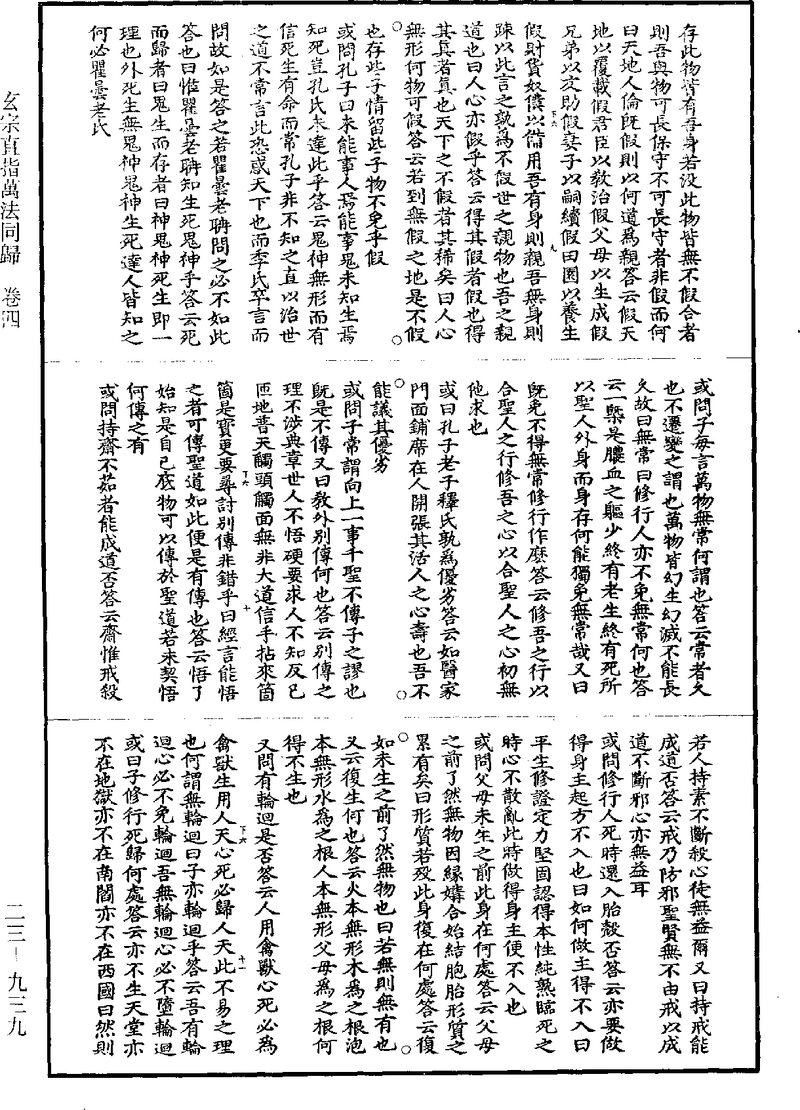 存此物皆有吾身若没此物皆無不假合者
則吾與物可長保守不可長守者非假而何
曰天地人倫旣假則以何道爲親答云假天
地以覆載假君臣以敎治假父母以生成假
兄弟以交助假妻子以嗣續假田園以養生
假財貨奴僕以備用吾有身則親吾無身則
踈以此言之孰爲不假世之親物也吾之親
道也曰人心亦假乎答云得其假者假也得
其眞者眞也天下之不假者其稀矣曰人心
無形何物可假答云若到無假之地是不假
也存些子情留些子物不免乎假
或問孔子曰未能事人焉能事鬼未知生焉
知死豈孔氏未達此乎答云鬼神無形而有
信死生有命而常孔子非不知之直以治世
之道不常言此恐惑天下也而李氏卒言而
問故如是答之若瞿曇老聃問之必不如此
答也曰惟瞿曇老聃知生死鬼神乎答云死
而歸者曰鬼生而存者曰神鬼神死生即一
理也外死生無鬼神鬼神生死達人皆知之
何必瞿曇老氏
或問子每言萬物無常何謂也答云常者久
也不遷變之謂也萬物皆幻生幻滅不能長
久故曰無常曰修行人亦不免無常何也答
云一槩是膿血之軀少終有老生終有死所
以聖人外身而身存何能獨免無常哉又曰
旣免不得無常修行作麽答云修吾之行以
合聖人之行修吾之心以合聖人之心初無
他求也
或曰孔子老子釋氏孰爲優劣答云如醫家
門面鋪席在人開張其活人之心壽也吾不
能議其優劣
或問子常謂向上一事千聖不傳子之謬也
旣是不傳又曰敎外别傳何也答云别傳之
理不涉典章世人不悟硬要求人不知反已
匝地普天觸頭觸面無非大道信手拈來箇
箇是寶更要尋討别傳非錯乎曰經言能悟
之者可傳聖道如此便是有傳也答云悟了
始知是自已底物可以傳於聖道若未契悟
何傳之有
或問持齋不茹者能成道否答云齋惟戒殺
若人持素不斷殺心徒無益爾又曰持戒能
成道否答云戒乃防邪聖賢無不由戒以成
道不斷邪心亦無益耳
或問修行人死時還入胎殼否答云亦要做
得身主起方不入也曰如何做主得不入曰
平生修證定力堅固認得本性純熟臨死之
時心不散亂此時做得身主便不入也
或問父母未生之前此身在何處答云父母
之前了然無物因緣媾合始結胞胎形質之
累有矣曰形質若殁此身復在何處答云復
如未生之前了然無物也曰若無則無有也
又云復生何也答云火本無形木爲之根泡
本無形水爲之根人本無形父母爲之根何
得不生也
又問有輪迴是否答云人用禽獸心死必爲
禽獸生用人天心死必歸人天此不易之理
也何謂無輪迴曰子亦輪迴乎答云吾有輪
迴心必不免輪迴吾無輪迴心必不墮輪迴
或曰子修行死歸何處答云亦不生天堂亦
不在地獄亦不在南閻亦不在西國曰然則
玄宗直指萬法同歸 卷四
二三－九三九